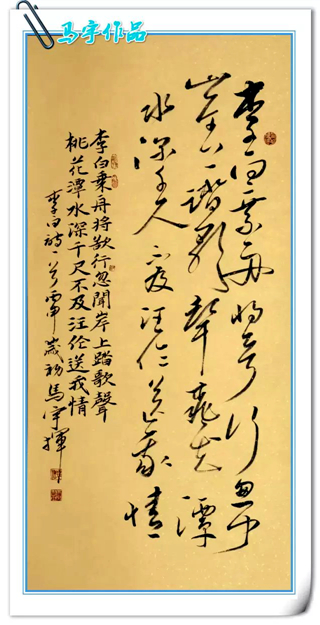 马宇作品
李白乘舟將欲行忽聞
岸上踏歌聲桃花潭
水深千尺不及汪伦送我情
李白乘舟將欲行忽聞岸上踏歌聲
桃花潭水深千尺不及汪伦送我情
李白詩一首丙申歲初馬宇揮